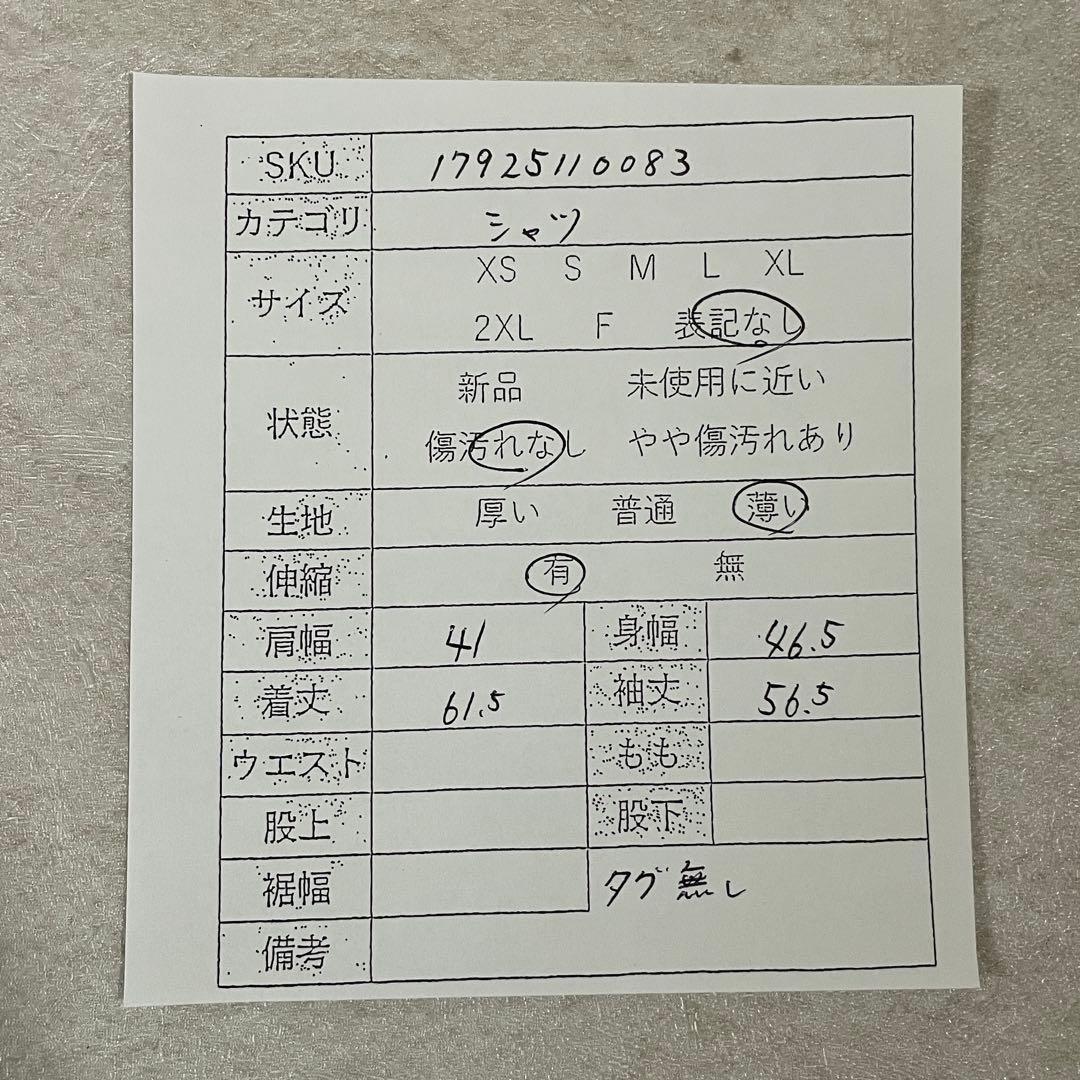 SKU 17925110083
カテゴリ シャツ
サイズ XS S M L XL
2XL F 表記なし
状態 新品 未使用に近い
傷汚れなし やや傷汚れあり
生地 厚い 普通 薄い
伸縮 有 無
肩幅 41 身幅 46.5
着丈 61.5 袖丈 56.5
ウエスト もも
股上 股下
裾幅 タグ無し
備考